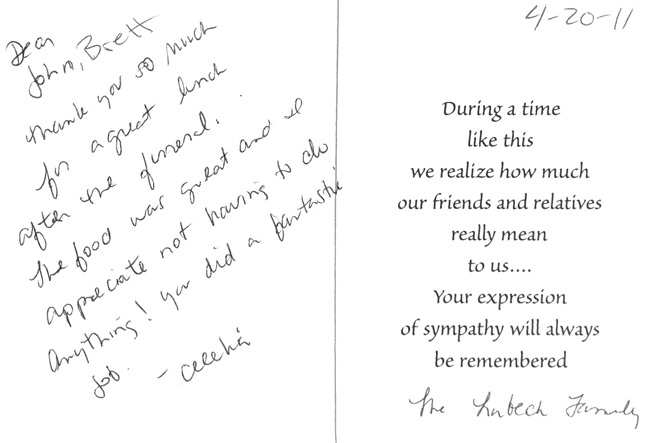 Dear
John, Brett
thank you so much
for a great lunch
after the funeral.
the food was great and I
appreciate not having to do
anything! you did a fantastic
job.
4-20-11
During a time
like this
we realize how much
our friends and relatives
really mean
to us....
Your expression
of sympathy will always
be remembered
the Family